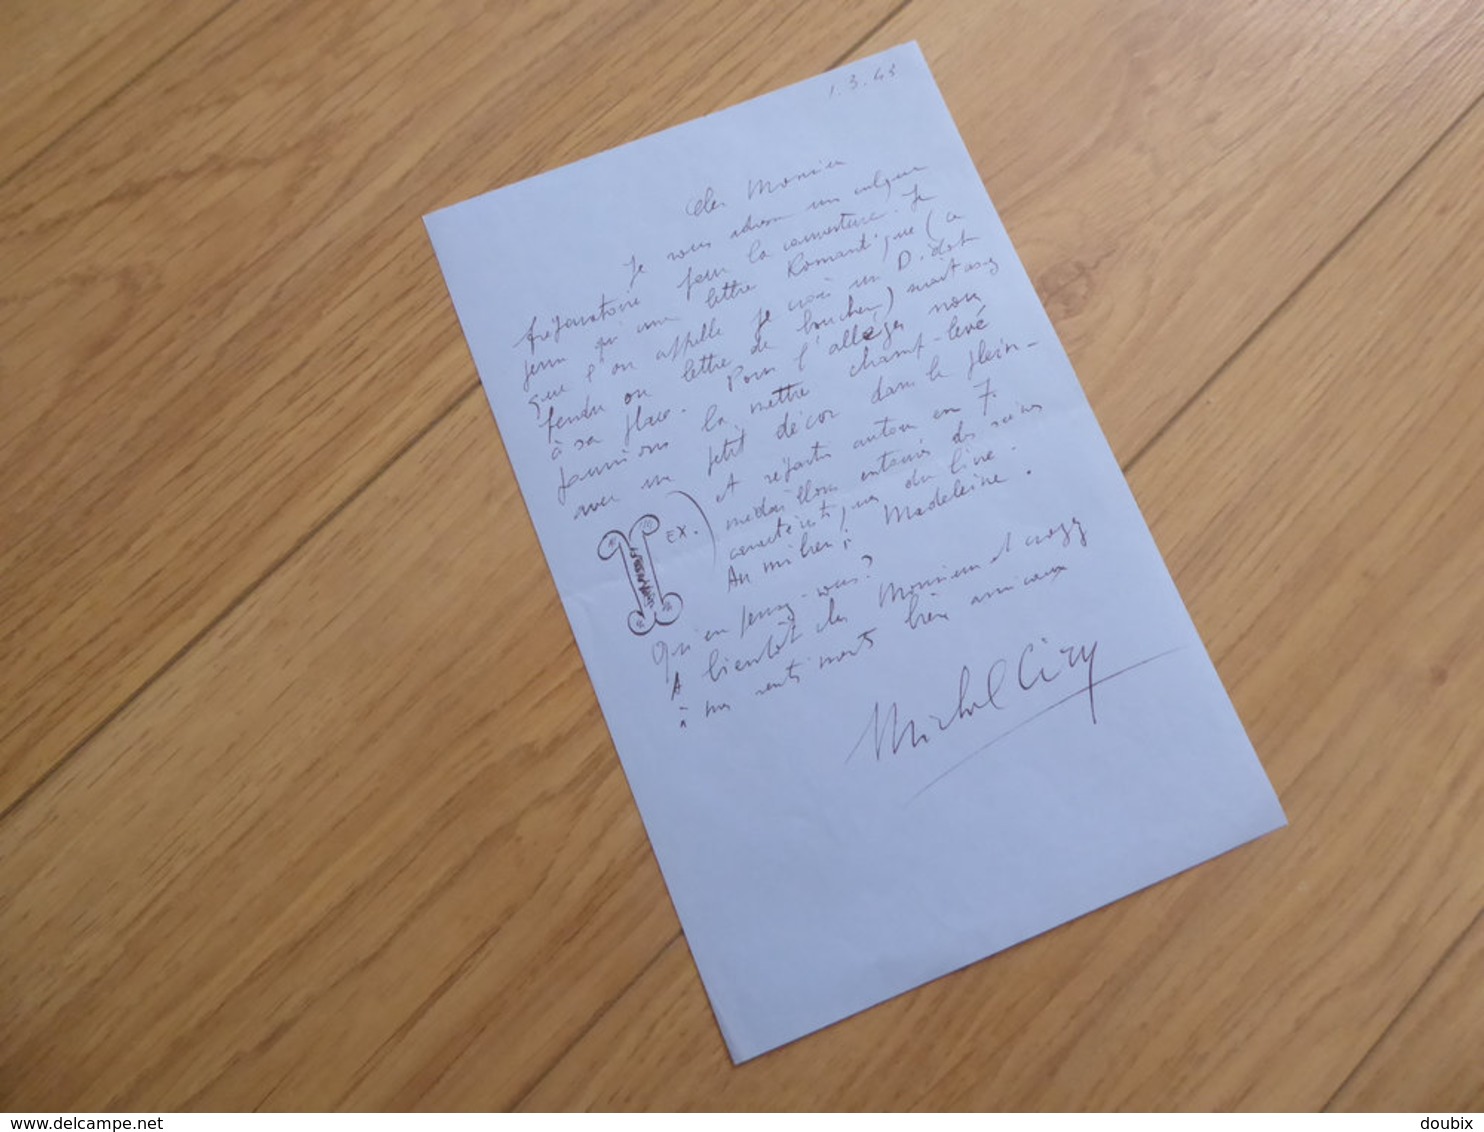 1.3.43
Cher Monsieur
Je vous adresse un calque
préparatoire pour la couverture. Je
pense qu'une lettre Romantique (ce
que l'on appelle je crois un Didot
fendu ou lettre de boucher) serait assez
à sa place. Pour l'alléger nous
pourrions la mettre champ-levé
avec un petit décor dans le plein-
EX.
et répartis autour en 7
médaillons entourés des
caractéristiques du livre.
Au milieu : Madeleine.
Qu'en pensez-vous ?
A bientôt cher Monsieur et croyez
à mes sentiments bien amicaux
Michel Ciry
www.delcampe.net
doubix